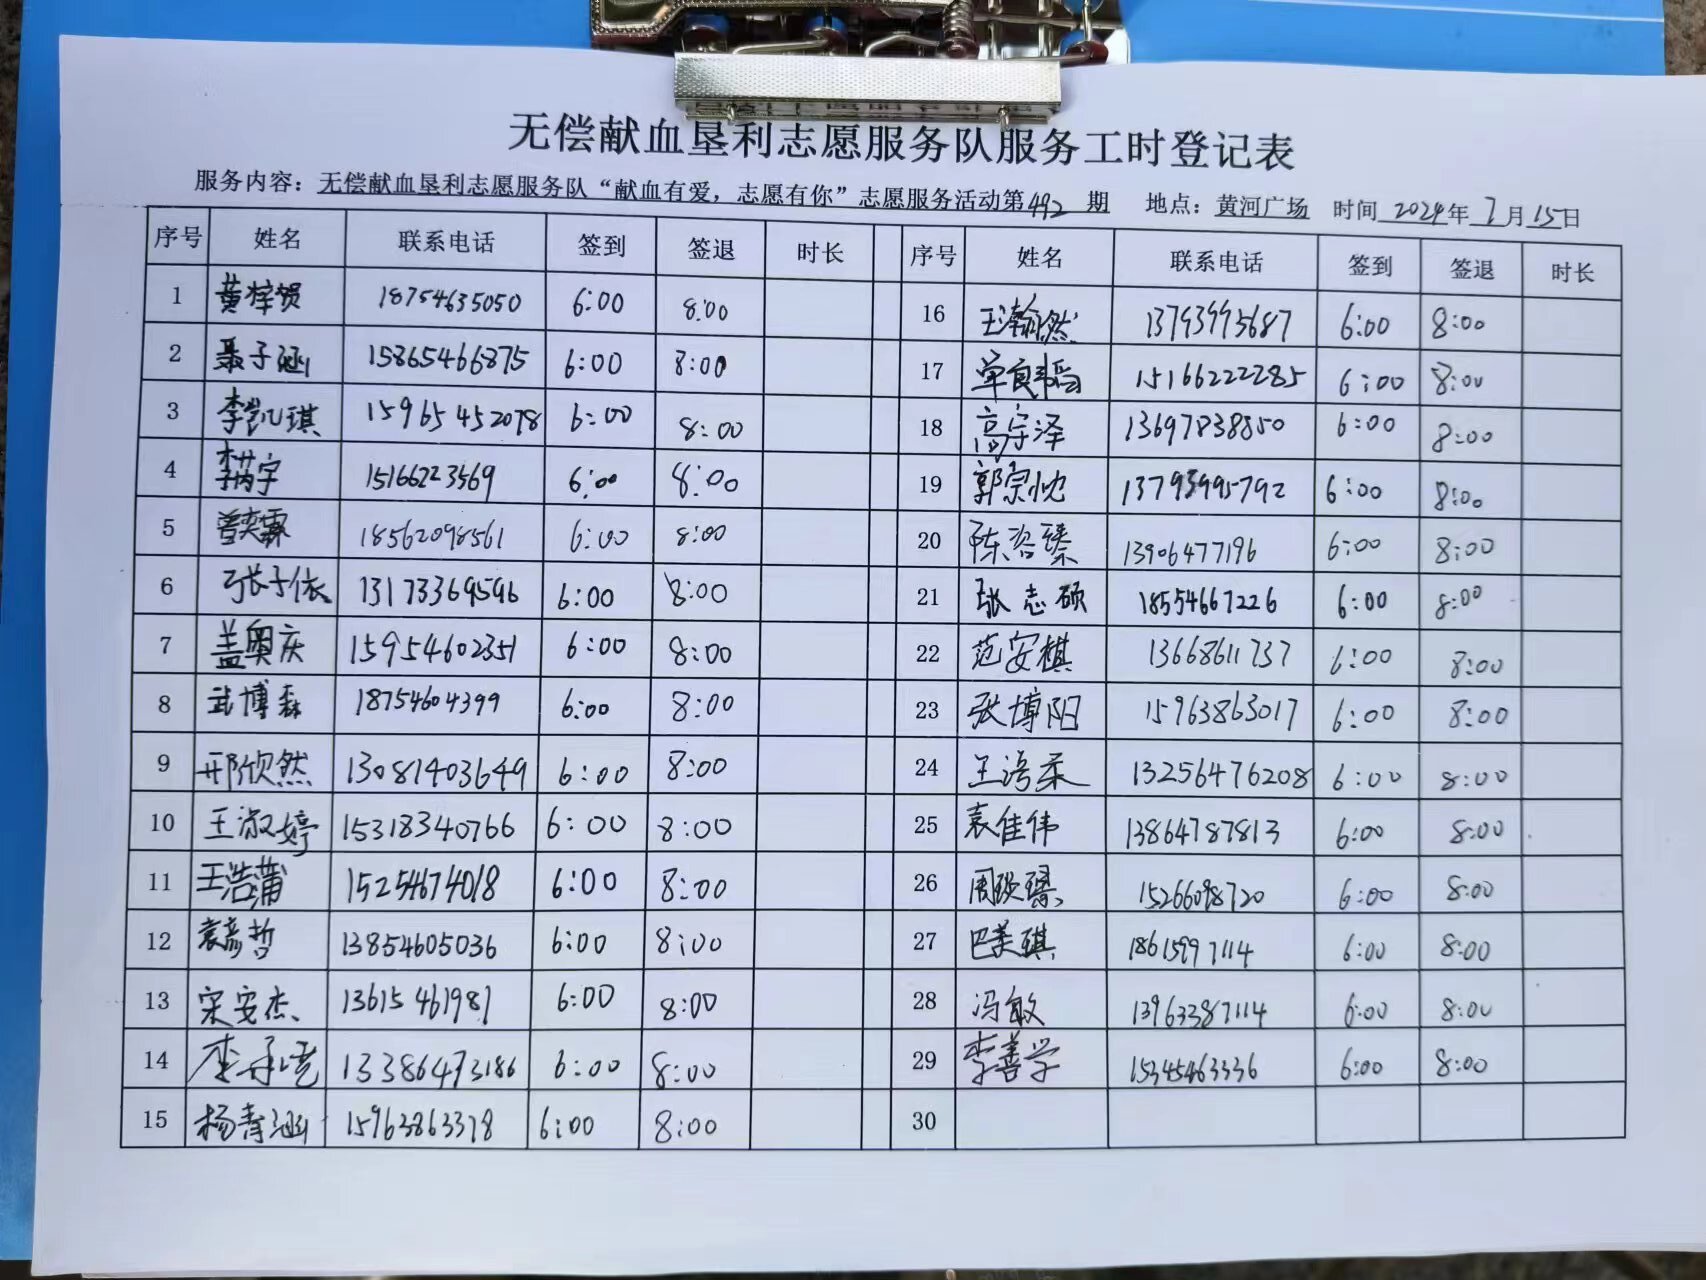 无偿献血垦利志愿服务队服务工时登记表
服务内容：无偿献血垦利志愿服务队“献血有爱，志愿有你”志愿服务活动第492期 地点：黄河广场 时间2024年7月15日
序号 姓名 联系电话 签到 签退 时长 序号 姓名 联系电话 签到 签退 时长
1 黄梓贤 18754635050 6:00 8:00 16 王瀚然 13793995687 6:00 8:00
2 聂子涵 15865466875 6:00 8:00 17 单良韬 15166222285 6:00 8:00
3 李凯琪 15965452078 6:00 8:00 18 高宇泽 13697838850 6:00 8:00
4 李芮宇 15166223569 6:00 8:00 19 郭宗忱 13793995792 6:00 8:00
5 曾奕霖 18562098561 6:00 8:00 20 陈洺臻 13906477196 6:00 8:00
6 张子依 13173369596 6:00 8:00 21 张志硕 18554667226 6:00 8:00
7 盖奥庆 15954602351 6:00 8:00 22 范安棋 13668611737 6:00 8:00
8 武博森 18754604399 6:00 8:00 23 张博阳 15963863017 6:00 8:00
9 邢欣然 13081403649 6:00 8:00 24 王 13256476208 6:00 8:00
10 王淑婷 15318340766 6:00 8:00 25 袁佳伟 13864787813 6:00 8:00
11 王浩蒲 15254674018 6:00 8:00 26 周 15266098720 6:00 8:00
12 袁彦哲 13854605036 6:00 8:00 27 巴美琪 18615997114 6:00 8:00
13 宋安杰 13615461981 6:00 8:00 28 冯敏 13963387114 6:00 8:00
14 李承 13386473186 6:00 8:00 29 李善学 15345463336 6:00 8:00
15 杨青涵 15963863378 6:00 8:00 30